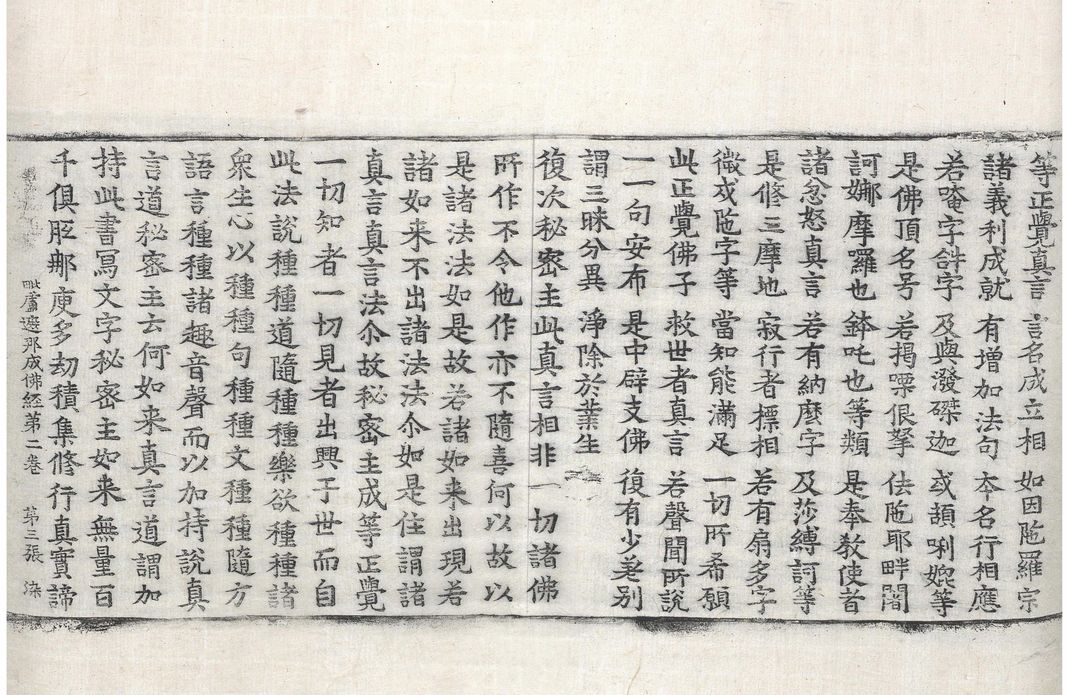 等正覺真言 言名成立相 如因陁羅宗
諸義利成就 有增加法句 本名行相應
若唵字𤙖字 及與潑磔迦 或頡唎媲等
是佛頂名号 若揭㗚佷拏 佉陁耶畔闍
訶娜摩囉也 鉢吒也等類 是奉教使者
諸忿怒真言 若有納麽字 及莎縛訶等
是修三摩地 寂行者標相 若有扇多字
微戍陁字等 當知能滿足 一切所希願
此正覺佛子 救世者真言 若聲聞所說
一一句安布 是中辟支佛 復有少差別
謂三昧分異 淨除於業生
復次秘密主此真言相非一切諸佛
所作不令他作亦不隨喜何以故以
是諸法法如是故若諸如来出現若
諸如来不出諸法法尒如是住謂諸
真言真言法尒故秘密主成等正覺
一切知者一切見者出興于世而自
此法說種種道隨種種樂欲種種諸
衆生心以種種句種種文種種隨方
語言種種諸趣音聲而以加持說真
言道秘密主云何如来真言道謂加
持此書寫文字秘密主如来無量百
千俱胝那庾多劫積集修行真實諦
毗盧遮那成佛経第二卷 第三張 染